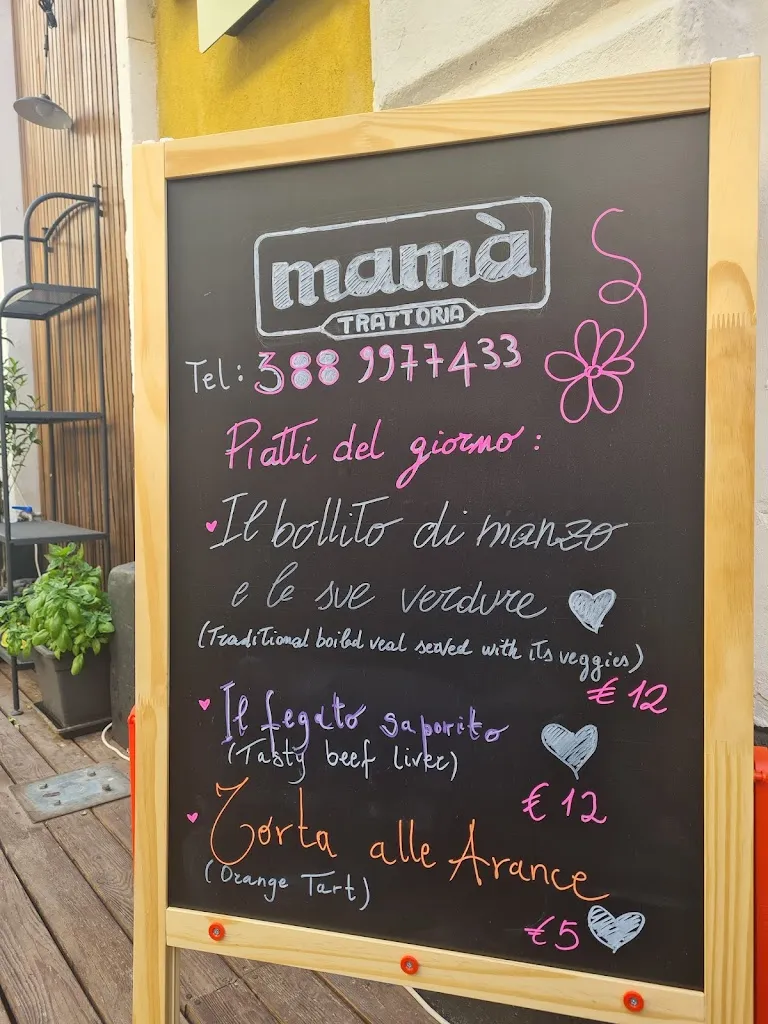 mamà
TRATTORIA
Tel: 388 9977433
Piatti del giorno:
Il bollito di manzo
e le sue verdure
(Traditional boiled veal served with its veggies)
€ 12
Il fegato saporito
(Tasty beef liver)
€ 12
Torta alle Arance
(Orange Tart)
€5